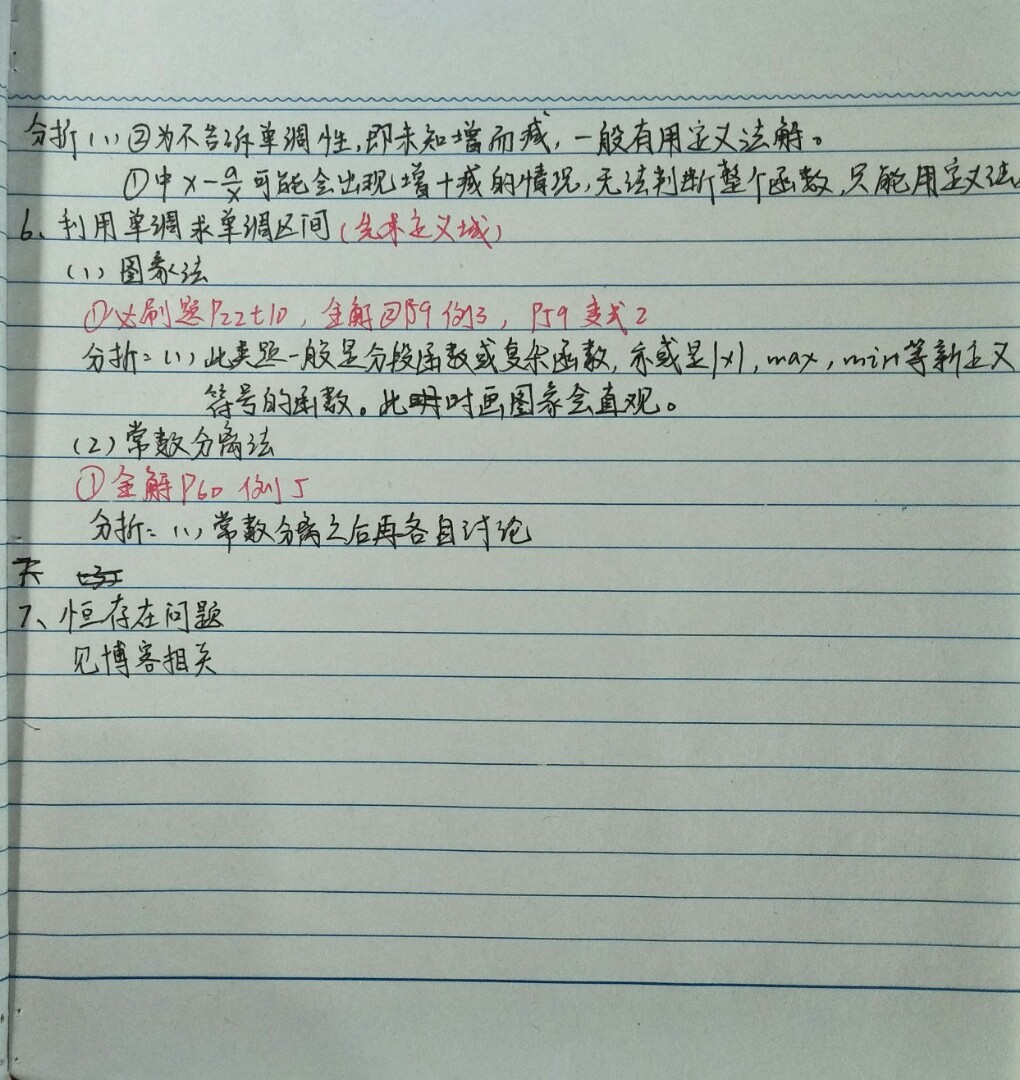 分折(1)②为不告诉单调性,即未知增而减,一般有用定义法解。
①中x-a/x可能会出现增+减的情况,无法判断整个函数,只能用定义法。
6、利用单调求单调区间(先求定义域)
(1)图象法
①必刷题P22t10,金解P59例3,P59变式2
分折:(1)此类题一般是分段函数或复杂函数,亦或是|x|,max,min等新定义
符号的函数。此时画图象会直观。
(2)常数分离法
①金解P60例5
分折:(1)常数分离之后再各自讨论
7、恒存在问题
见博客相关